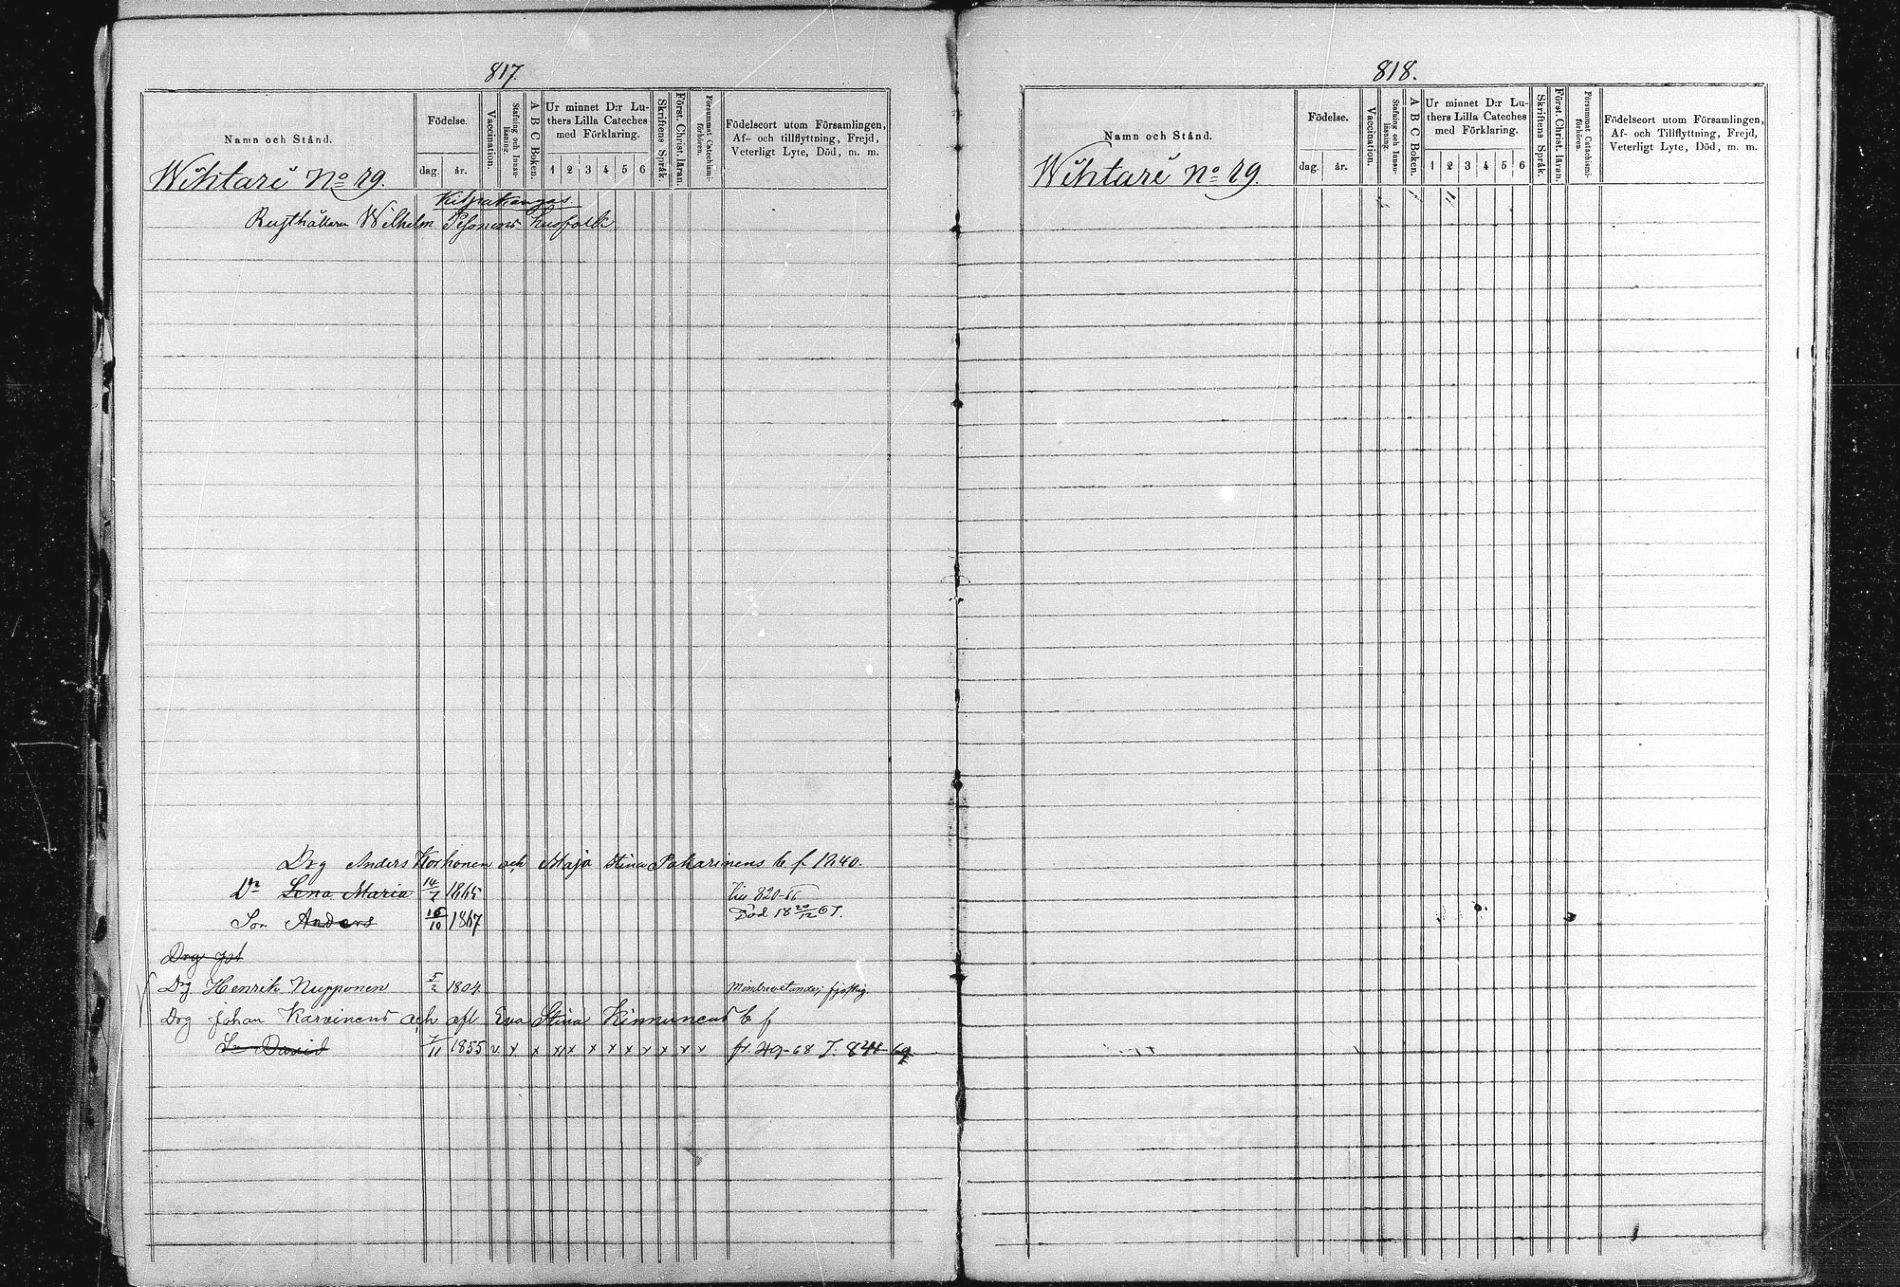 817.
Namn och Stånd.
Födelse.
dag. år.
Vaccination.
Stafning och Innanläsning.
A B C Boken.
Ur minnet D:r Luthers Lilla Cateches med Förklaring.
1 2 3 4 5 6
Skriftens Språk.
Först. Christ. läran.
Försummat Catechismiförhören.
Födelseort utom Församlingen,
Af- och tillflyttning, Frejd,
Veterligt Lyte, Död, m. m.
Wihtari No 19.
Rusthållaren Wilhelm Pesonens husfolk
Drg Anders Korhonen och Maja Stina Pakarinens b f 1240.
Dr Lena Maria 14/7 1865 820-66
Son Anders 16/10 1867 Död 18 20/12 67.
Drg
Drg Henrik Nupponen 5/2 1804
Drg Johan Karvinens och afl Eva Stina Kinnunens b f
Sn David 7/11 1855 v x x xx x x x x x x x fr. 49-68 T. 841-69
818.
Namn och Stånd.
Födelse.
dag. år.
Vaccination.
Stafning och Innanläsning.
A B C Boken.
Ur minnet D:r Luthers Lilla Cateches med Förklaring.
1 2 3 4 5 6
Skriftens Språk.
Först. Christ. läran.
Försummat Catechismiförhören.
Födelseort utom Församlingen,
Af- och Tillflyttning, Frejd,
Veterligt Lyte, Död, m. m.
Wihtari No 19.